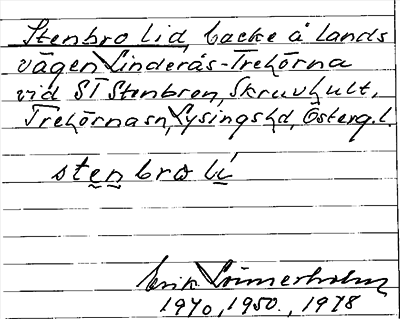 Stenbro lid, backe å lands
vägen Linderås-Trehörna
vid ST Stenbron, Skruvhult,
Trehörna sn, Lysings hd, Österg. l.
stenbro lí
Erik Linnerholm
1940, 1950., 1978